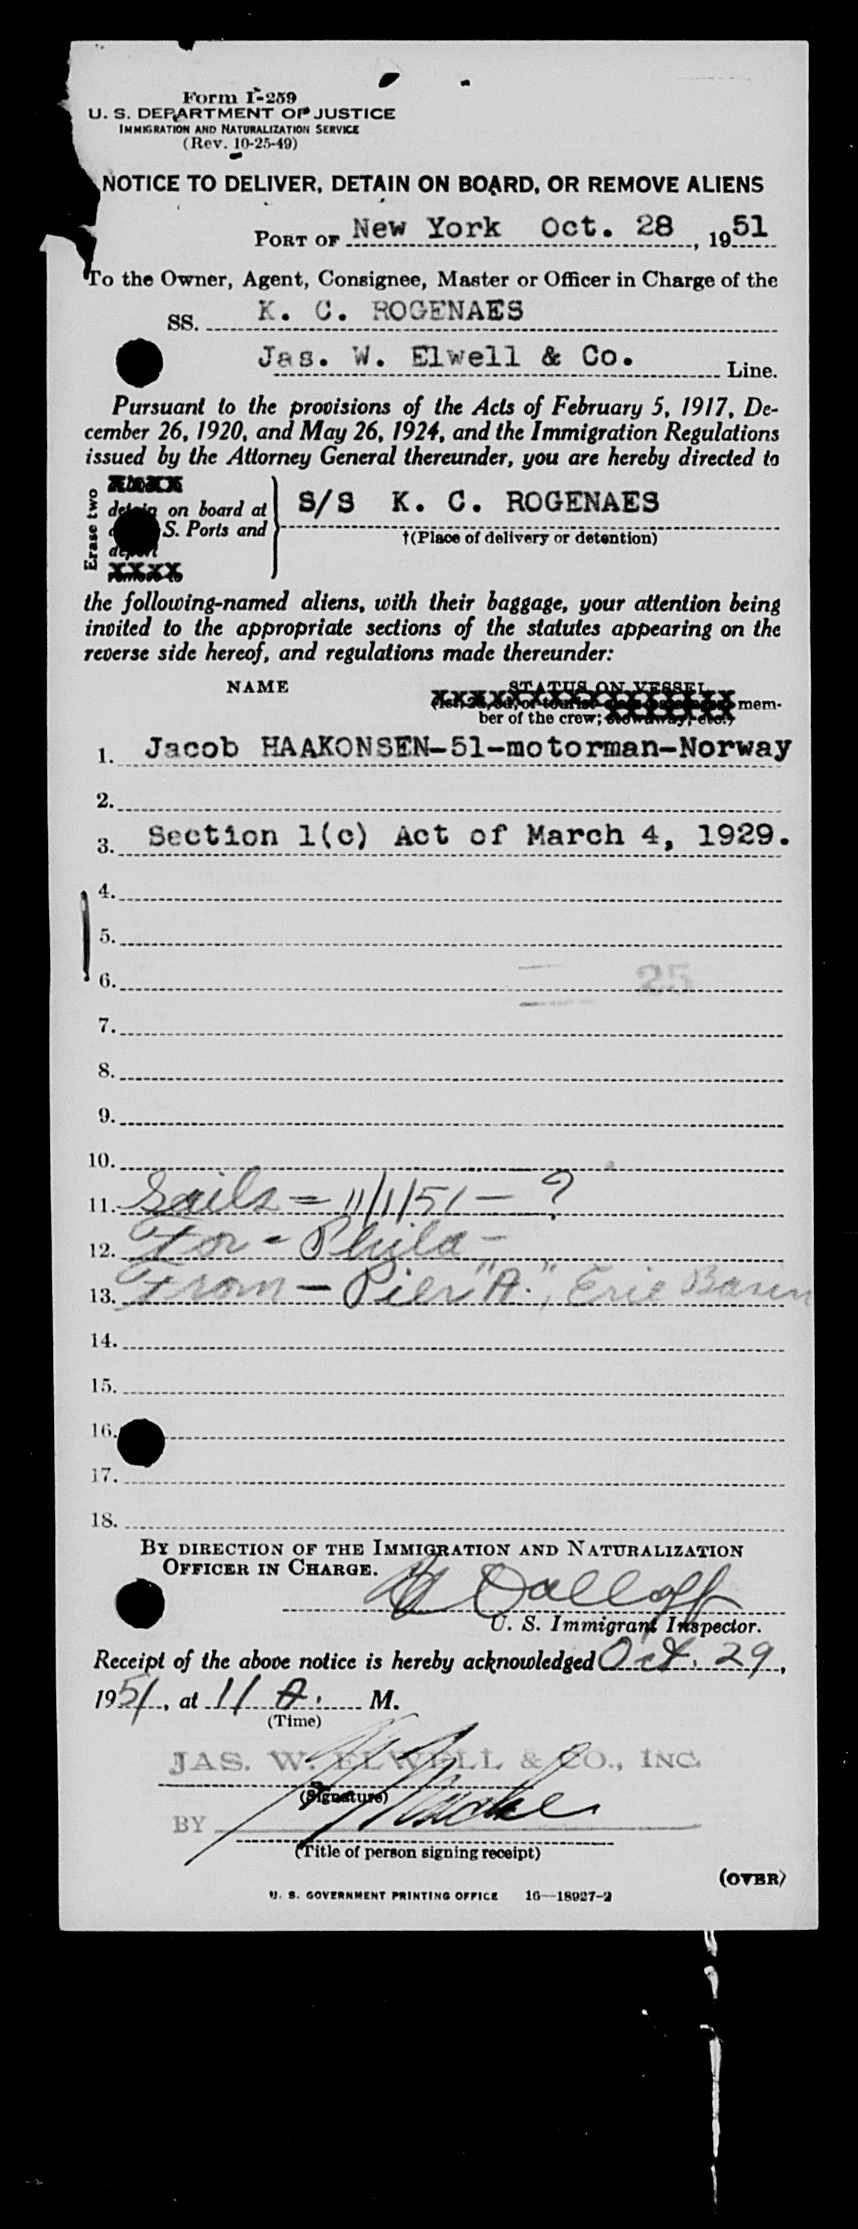 Form I-259
U. S. DEPARTMENT OF JUSTICE
IMMIGRATION AND NATURALIZATION SERVICE
(Rev. 10-25-49)
NOTICE TO DELIVER, DETAIN ON BOARD, OR REMOVE ALIENS
PORT OF New York Oct. 28, 1951
To the Owner, Agent, Consignee, Master or Officer in Charge of the
SS. K. C. ROGENAES
Jas. W. Elwell & Co. Line.
Pursuant to the provisions of the Acts of February 5, 1917, De-
cember 26, 1920, and May 26, 1924, and the Immigration Regulations
issued by the Attorney General thereunder, you are hereby directed to
Erase two
detain on board at
S. Ports and
deport
remove to
S/S K. C. ROGENAES
†(Place of delivery or detention)
the following-named aliens, with their baggage, your attention being
invited to the appropriate sections of the statutes appearing on the
reverse side hereof, and regulations made thereunder:
NAME STATUS ON VESSEL
mem-
ber of the crew; stowaway, etc.)
1. Jacob HAAKONSEN-51-motorman-Norway
2.
3. Section 1(c) Act of March 4, 1929.
4.
5.
6. 25
7.
8.
9.
10.
11. Sails - 11/1/51 - ?
12. For - Phila -
13. From - Pier "A", Erie Basin
14.
15.
16.
17.
18.
BY DIRECTION OF THE IMMIGRATION AND NATURALIZATION
OFFICER IN CHARGE.
U. S. Immigrant Inspector.
Receipt of the above notice is hereby acknowledged Oct. 29,
1951, at 11 A. M.
(Time)
JAS. W. ELWELL & CO., INC.
(Signature)
BY
(Title of person signing receipt)
(OVER)
U. S. GOVERNMENT PRINTING OFFICE 16—18927-2